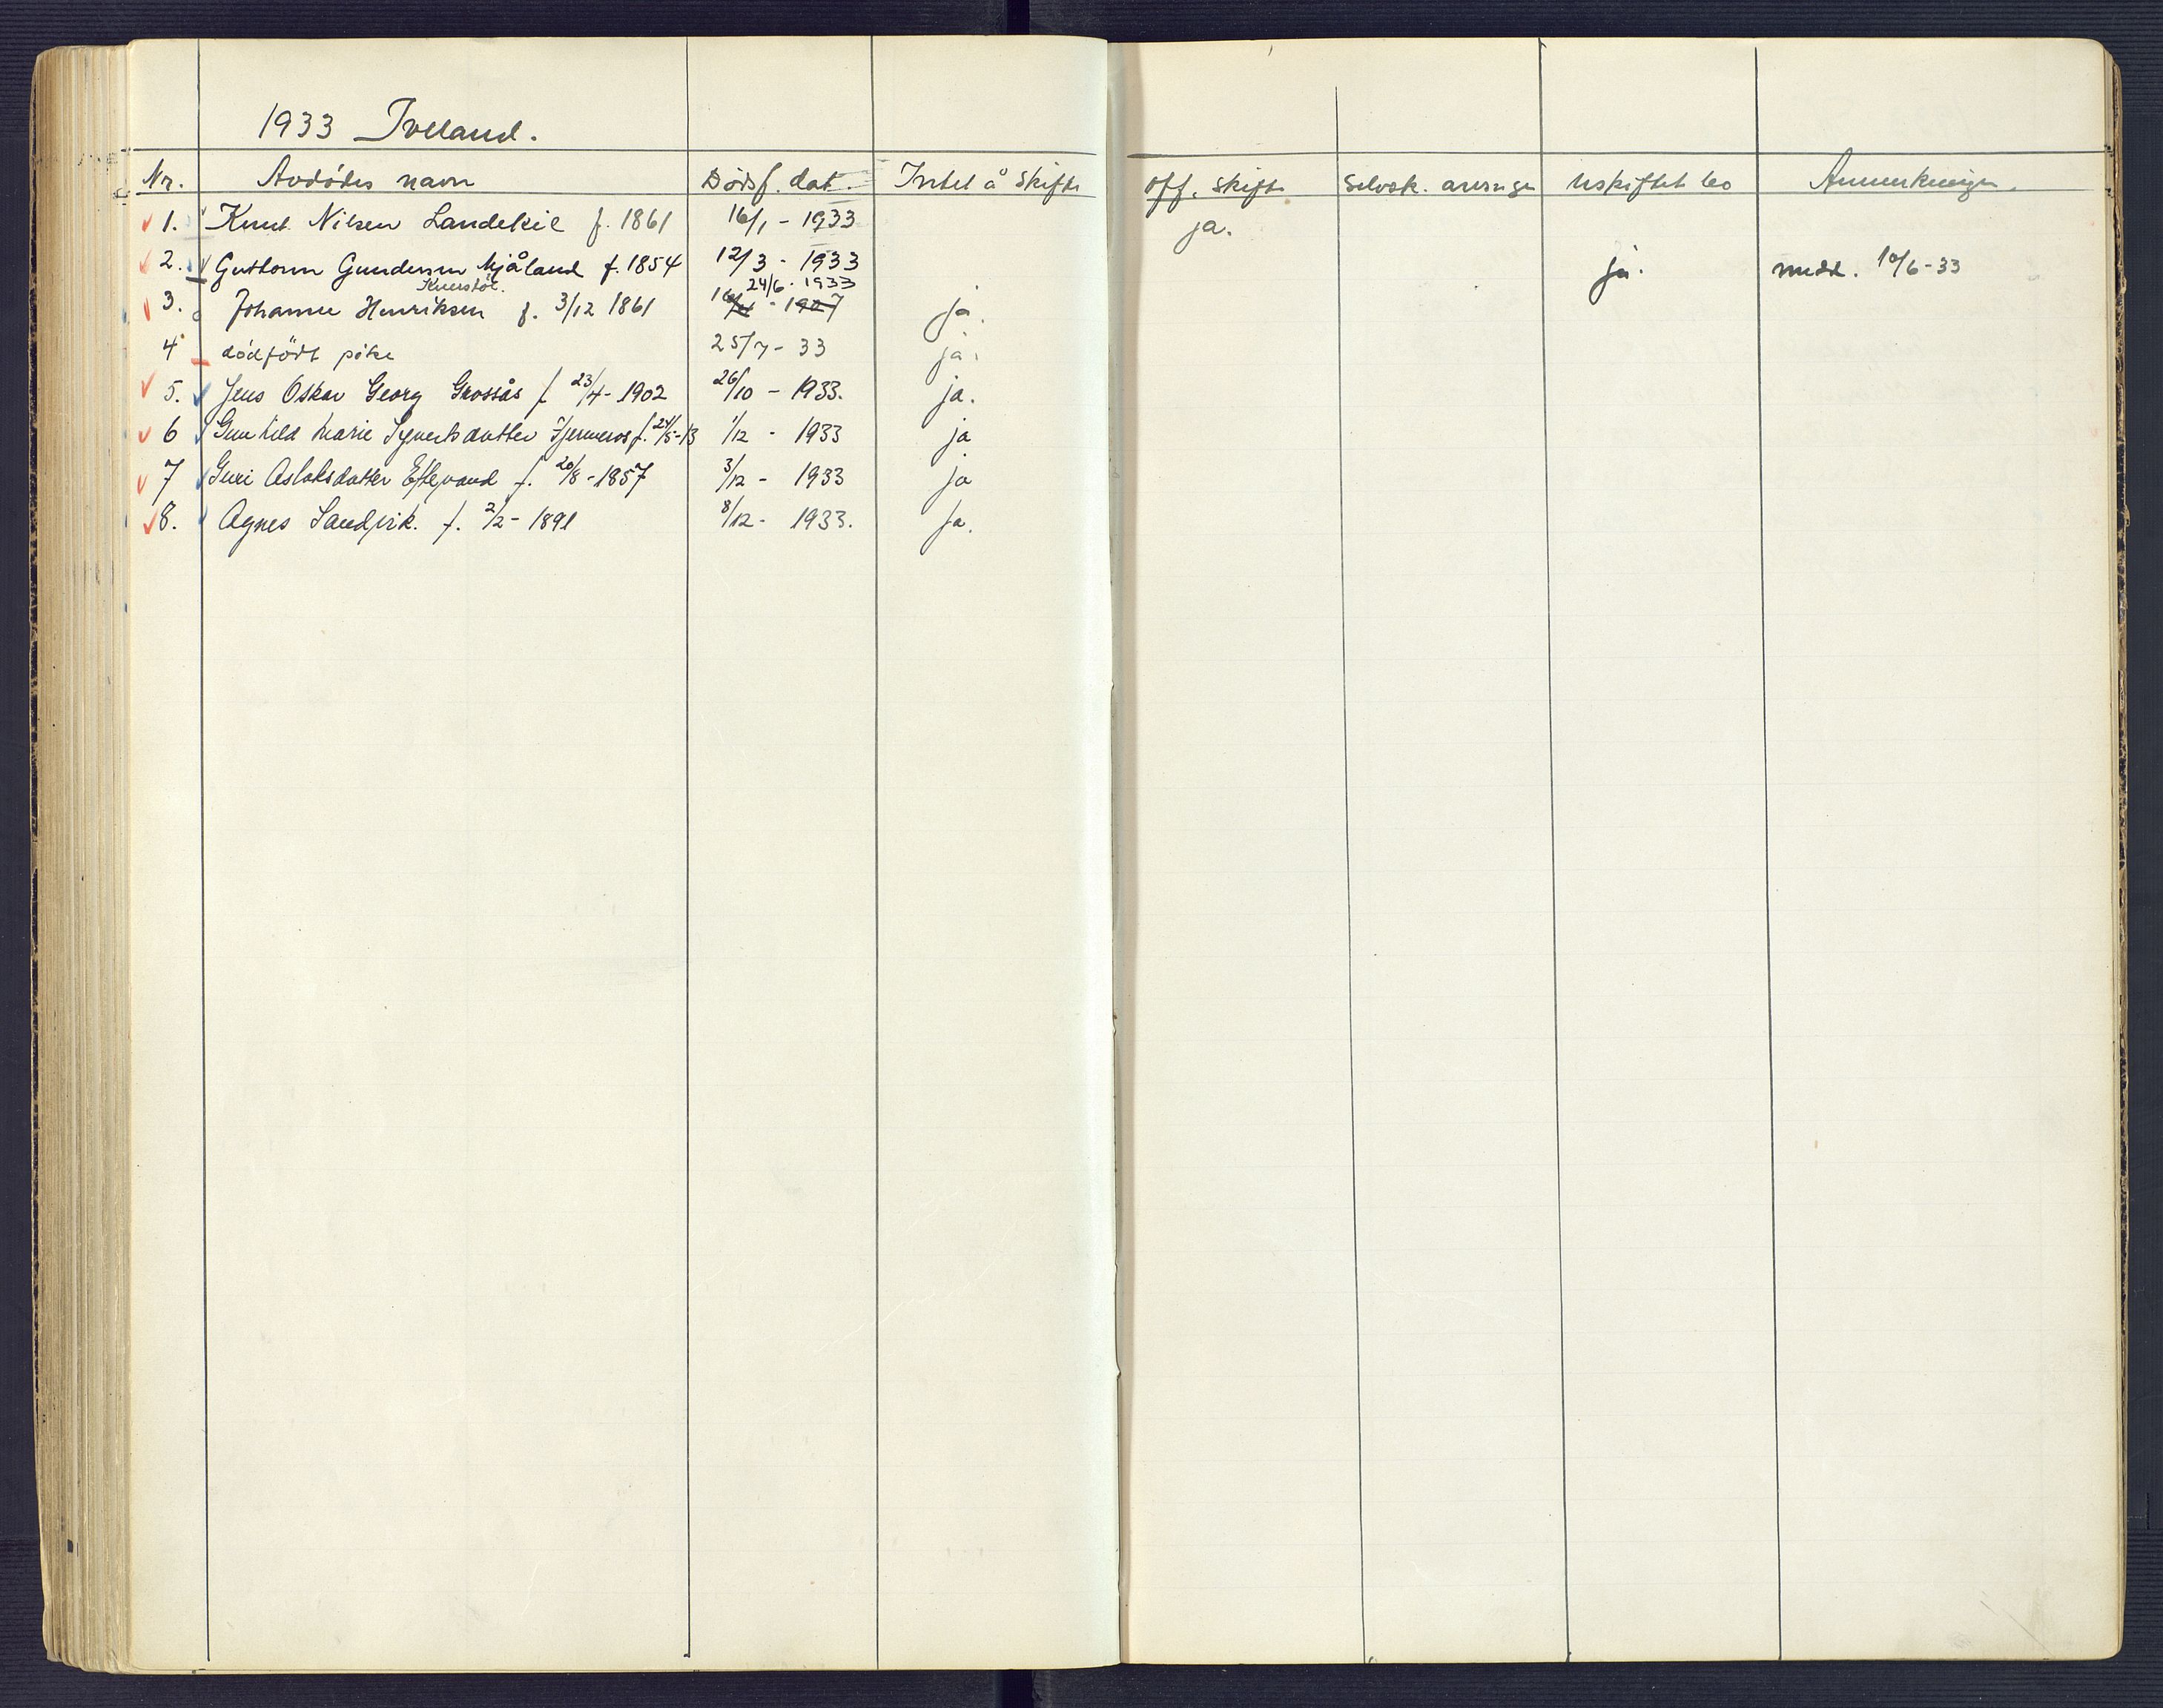 1933 Iveland.
Nr. Avdödes navn Dödsf. dat. Intet å skifte off. skifte selvsk. arvinger uskiftet bo Anmerkninger.
1. Knut Nilsen Landekil f. 1861 16/1 - 1933 ja.
2. Guttorm Gundersen Mjåland f. 1854 12/3 - 1933 ja. medd. 10/6-33
24/6 - 1933
3. Johanne Henriksen f. 3/12 1861 ja.
4 dödfödt pike 25/7 - 33 ja.
5. Jens Oskar Georg Grossås f 23/4 - 1902 26/10 - 1933. ja.
6 Gunhild Marie Syvertsdatter f. 24/5-13 1/12 - 1933 ja
7 Guri Aslaksdatter Eftevand f. 20/8 - 1857 3/12 - 1933 ja
8. Agnes Sandvik. f. 2/2 - 1891 8/12 - 1933. ja.